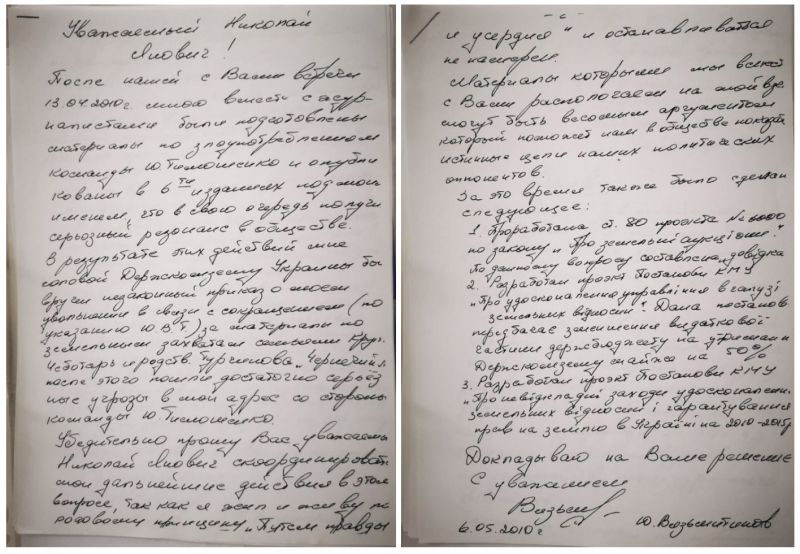 Уважаемый Николай
Янович!
После нашей с Вами встречи
13.04.2010г. мною вместе с жур-
налистами были подготовлены
материалы по злоупотреблениям
команды Ю.Тимошенко и опубли
кованы в 6ти изданиях под моим
именем, что в свою очередь получи
серьозный резонанс в обществе.
В результате этих действий мне
головой Держкомзему Украины бы
вручен незаконный приказ о моем
увольнении в связи с сокращением (по
указанию Ю.В.Т.) за материалы по
земельным захватам семьями
Чеботарь и родств. Турчинова
после этого пошли достаточно серьёз
ные угрозы в мой адрес со стороны
команды Ю.Тимошенко.
Убедительно прошу Вас, уважаемы
Николай Янович скоординировать
мои дальнейшие действия в этом
вопросе, так как я жил и живу по
родовому принципу „Путем правды
и усердия" и останавливаться
не намерен.
Материалы которыми мы вместе
с Вами располагаем на мой
могут быть весомым аргументом
который поможет нам в обществе показать
истинные цели наших политических
оппонентов.
За это время также было сделан
следующее:
1. Проработана ст. 80 проекта №
по закону „Про земельні аукціони".
По данному вопросу составлена „довідка
2. Разработан проэкт Постанови КМУ
„Про удосконалення управління в галузі
земельних відносин". Дана постанов.
передбачає зменшення видаткової
частини держбюджету на утримання
Держкомзему майже на 50%
3. Разработан проэкт Постанови КМУ
„Про невідкладні заходи удосконален.
земельних відносин і гарантування
прав на землю в Україні на 2010-2015р
Докладываю на Ваше решение
С уважением
6.05.2010г Ю.